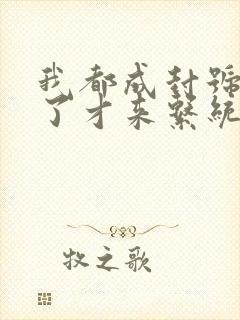 我都成封號
了才来繫統
牧之歌